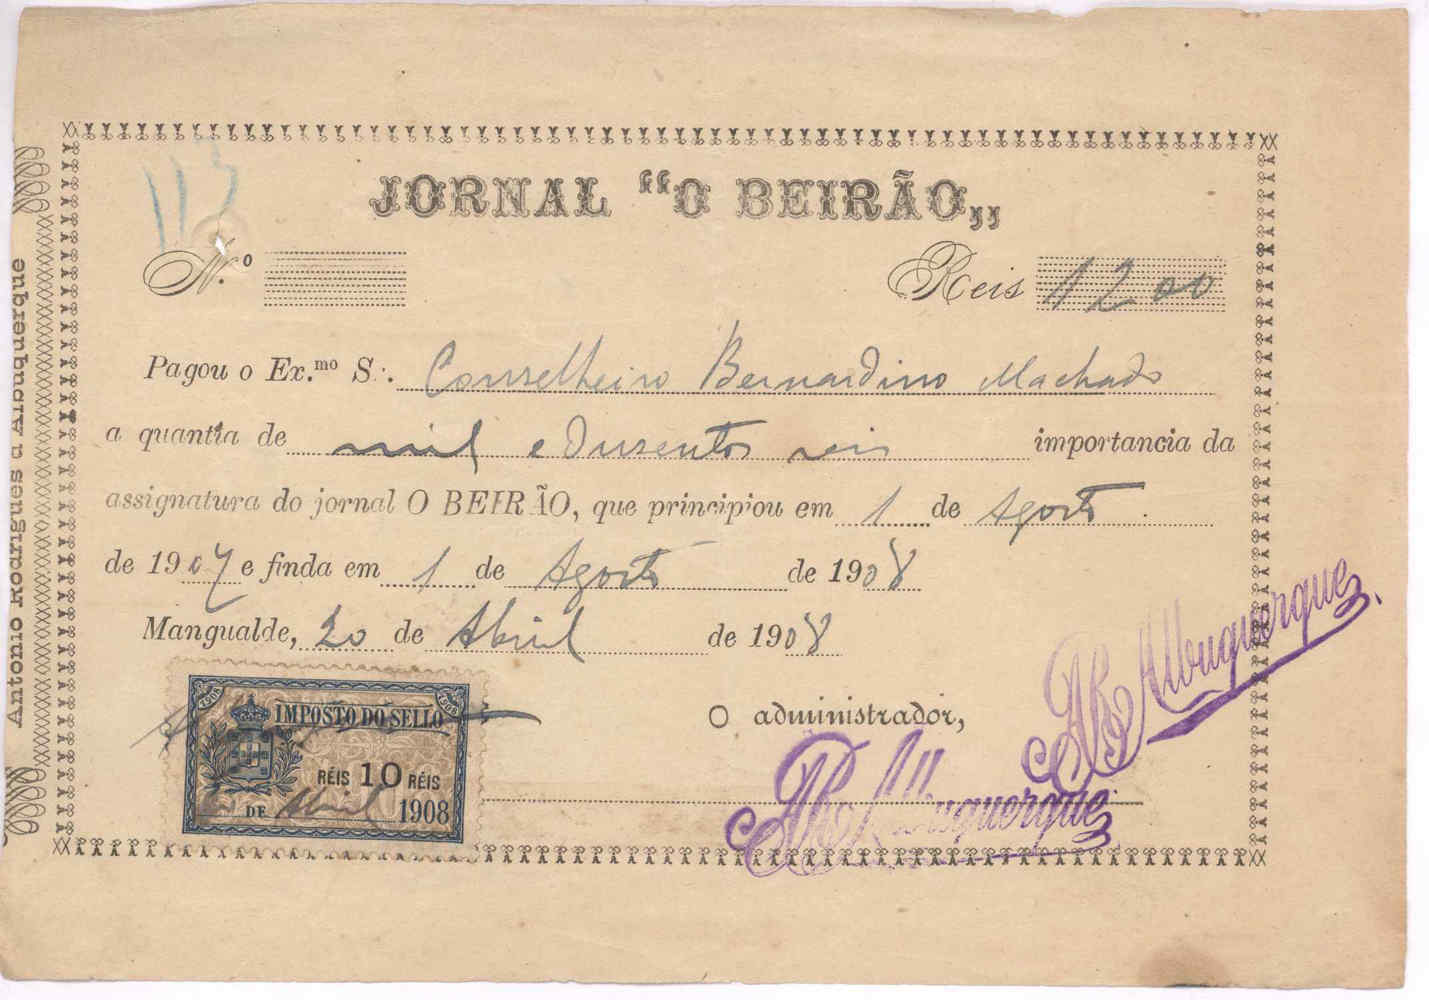 113
JORNAL “O BEIRÃO„
N.º
Reis 1200
Pagou o Ex.mo S.r. Conselheiro Bernardino Machado
a quantia de mil e dusentos reis importancia da
assignatura do jornal O BEIRÃO, que principiou em 1 de Agosto
de 1907 e finda em 1 de Agosto de 1908
Mangualde, 20 de Abril de 1908
O administrador,
ARAlbuquerque
ARAlbuquerque
1908
1908
IMPOSTO DO SELLO
RÉIS 10 RÉIS
DE Abril 1908
Antonio Rodrigues d'Albuquerque